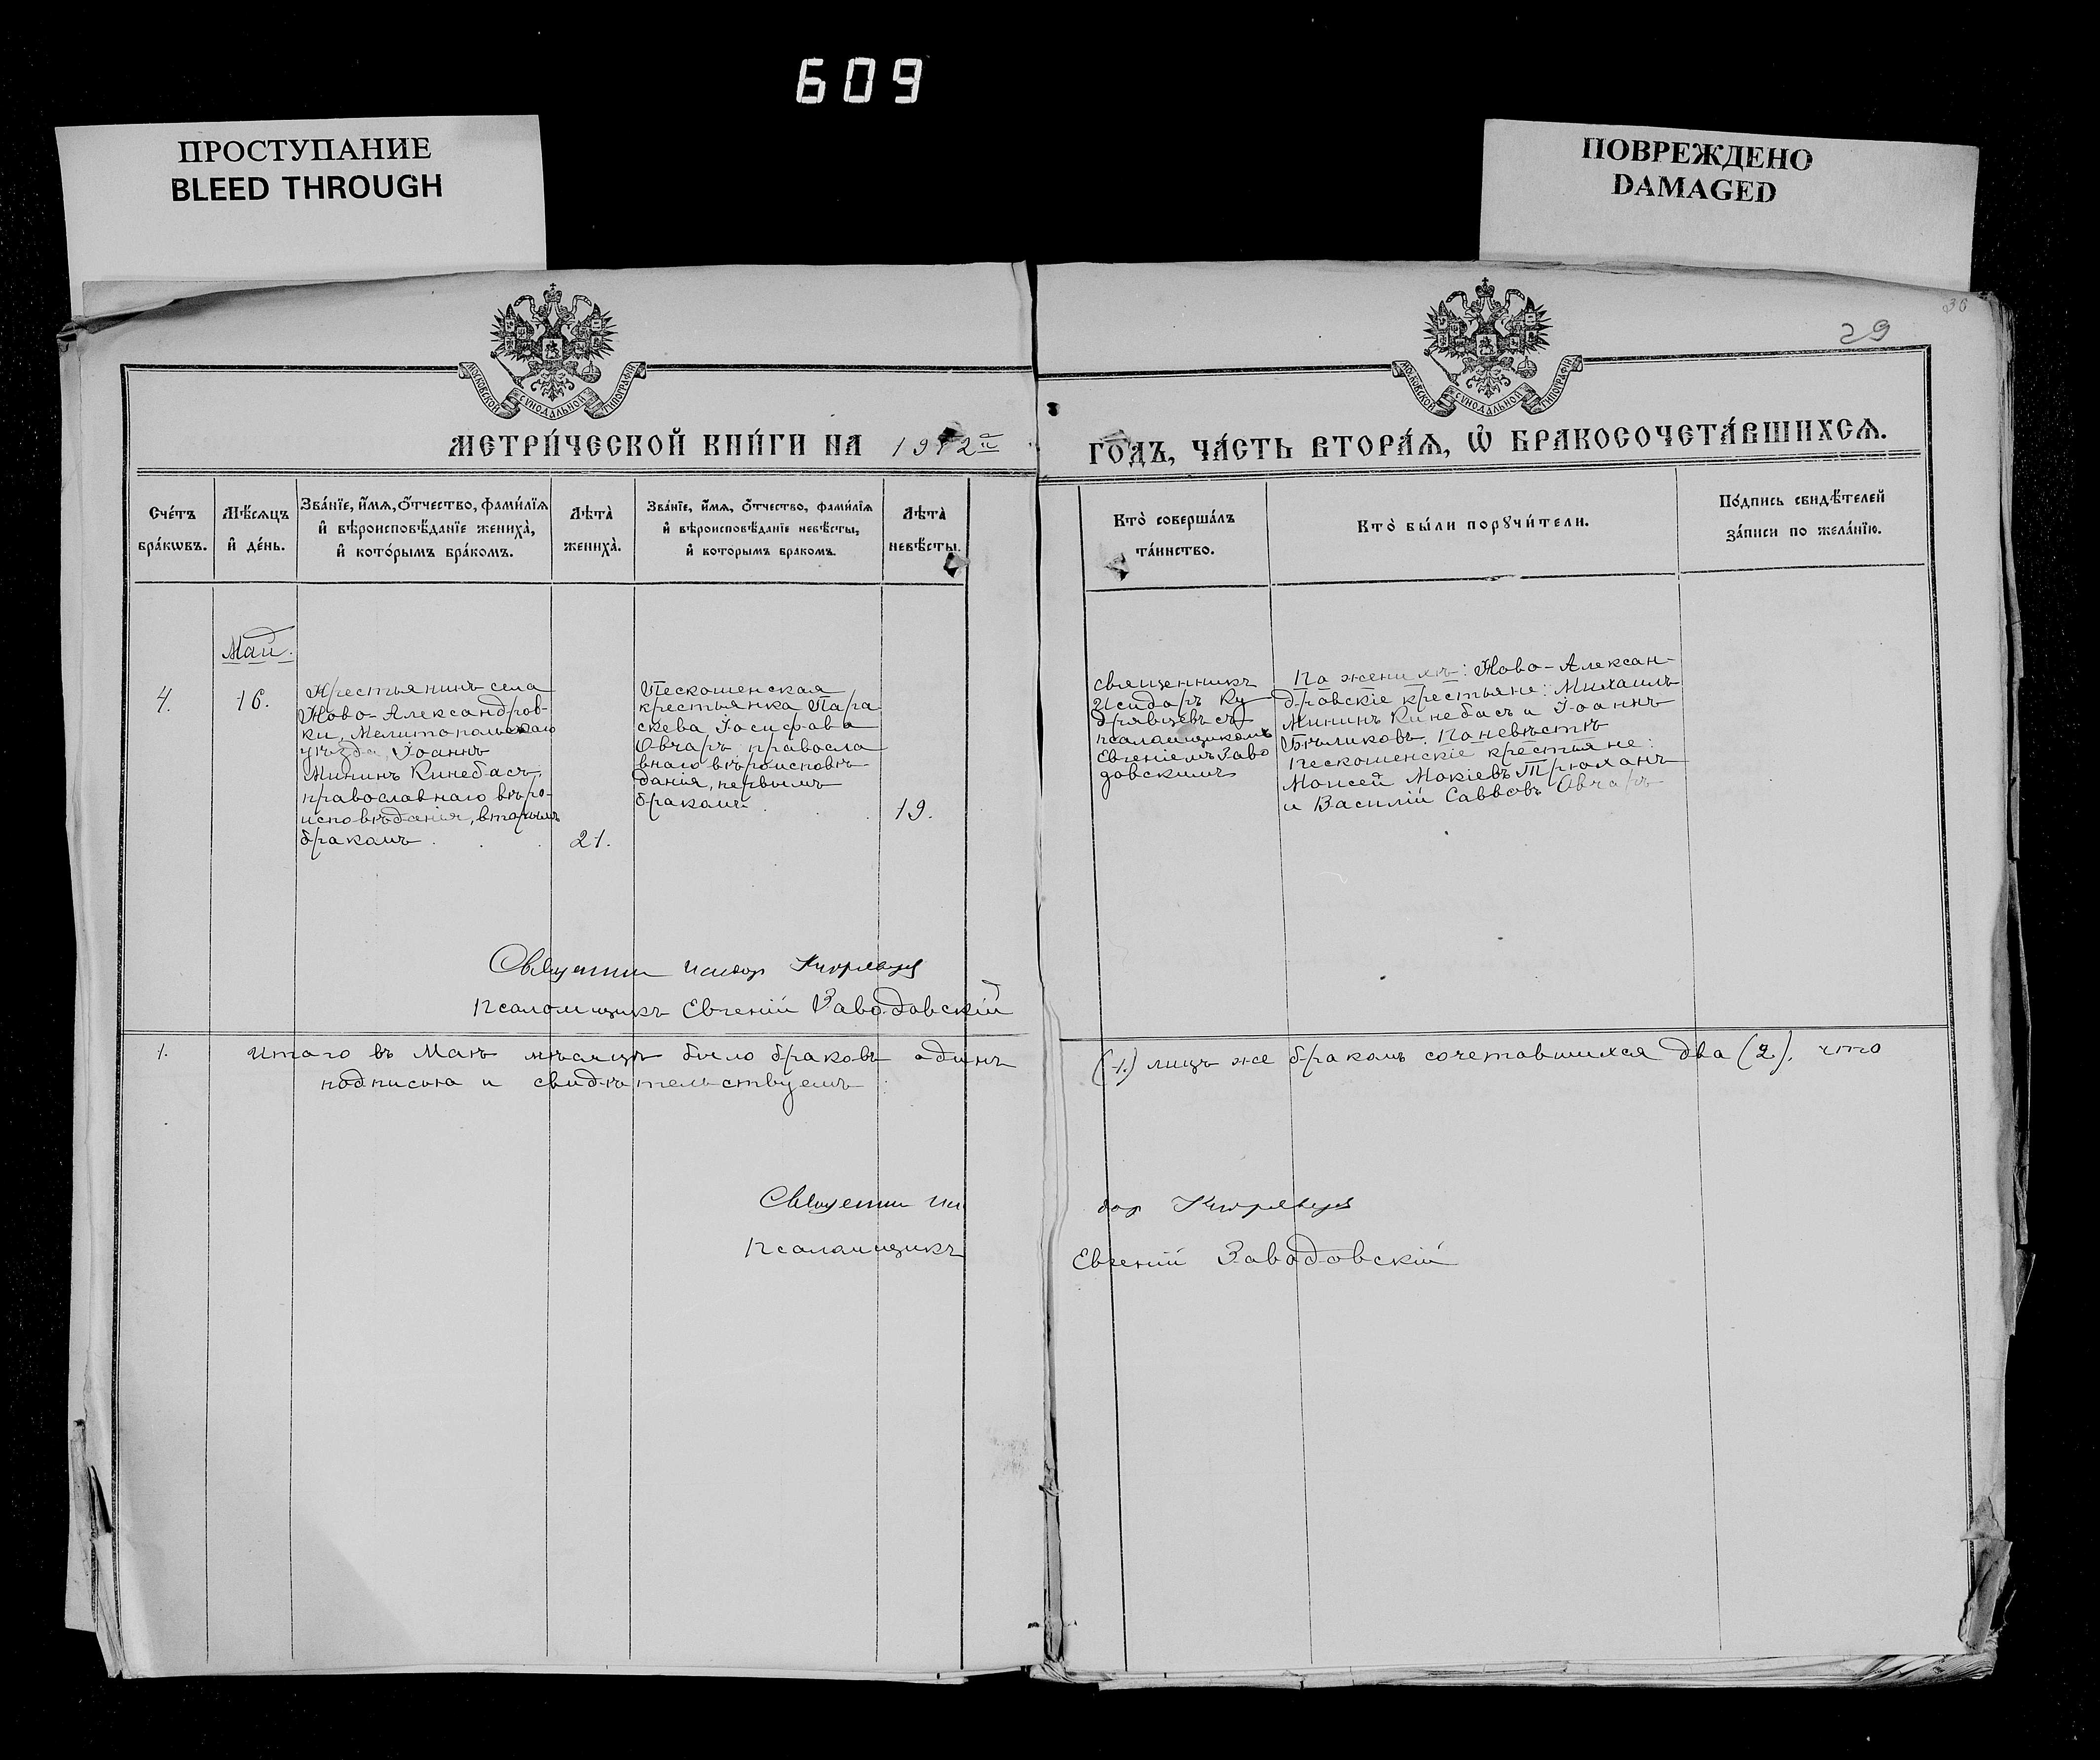 609
ПРОСТУПАНИЕ
BLEED THROUGH
ПОВРЕЖДЕНО
DAMAGED
30
29
МОСКОВСКОЙ СУНОДАЛЬНОЙ ТИПОГРАФІИ
МОСКОВСКОЙ СУНОДАЛЬНОЙ ТИПОГРАФІИ
МЕТРИ́ЧЕСКОЙ КНИ́ГИ НА 1912й
ГО́ДЪ, ЧА́СТЬ ВТОРА́Ѧ, Ѡ҆ БРАКОСОЧЕТА́ВШИХСѦ.
Сче́тъ
бра́кѡвъ.
Мѣ́сѧцъ
и҆ де́нь.
Зва́нїе, и҆́мѧ, ѻ҆́тчество, фами́лїѧ
и҆ вѣроисповѣ́данїе жениха̀,
и҆ кото́рымъ бра́комъ.
Лѣта̀
жениха̀.
Зва́нїе, и҆́мѧ, ѻ҆́тчество, фами́лїѧ
и҆ вѣроисповѣ́данїе невѣ́сты,
и҆ которымъ бракомъ.
Лѣта̀
невѣ́сты.
Кто̀ соверша́лъ
та́инство.
Кто̀ бы́ли порꙋчи́тели.
По́дпись свидѣ́телей
за́писи по жела́нїю.
Май.
4.
16.
Крестьянинъ села
Ново-Александров-
ки, Мелитопольскаго
уѣзда Іоаннъ
Мининъ Кинебасъ,
православнаго вѣро-
исповѣданія, вторымъ
бракомъ
21.
Пескошенская
крестьянка Пара
скева Іосифова
Овчаръ, правосла
внаго вѣроисповѣ
данія, первымъ
бракомъ
19.
священникъ
Исидоръ Ку
дрявцевъ съ
псаломщикомъ
Евгеніемъ Заво
довскимъ
По женихѣ: Ново-Алексан-
дровскіе крестьяне: Михаилъ
Мининъ Кинебасъ и Іоаннъ
Бѣликовъ. По невѣстѣ
пескошенскіе крестьяне:
Моисей Мокіевъ Трюханъ
и Василій Саввовъ Овчаръ
Священник Исидор Кудрявцев
Псаломщикъ Евгеній Заводовскій
1.
Итого въ Маѣ мѣсяцѣ было браковъ одинъ (1.) лицъ же бракомъ сочетавшихся два (2), что
подписью и свидѣтельствуемъ
Священник Исидор Кудрявцев
Псаломщикъ Евгеній Заводовскій